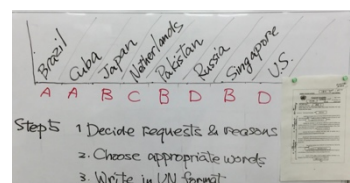 Brazil Cuba Japan Netherlands Pakistan Russia Singapore U.S.
A A B C B D B D
Step5 1 Decide Requests & reasons
2. Choose appropriate words
3. Write in UN format